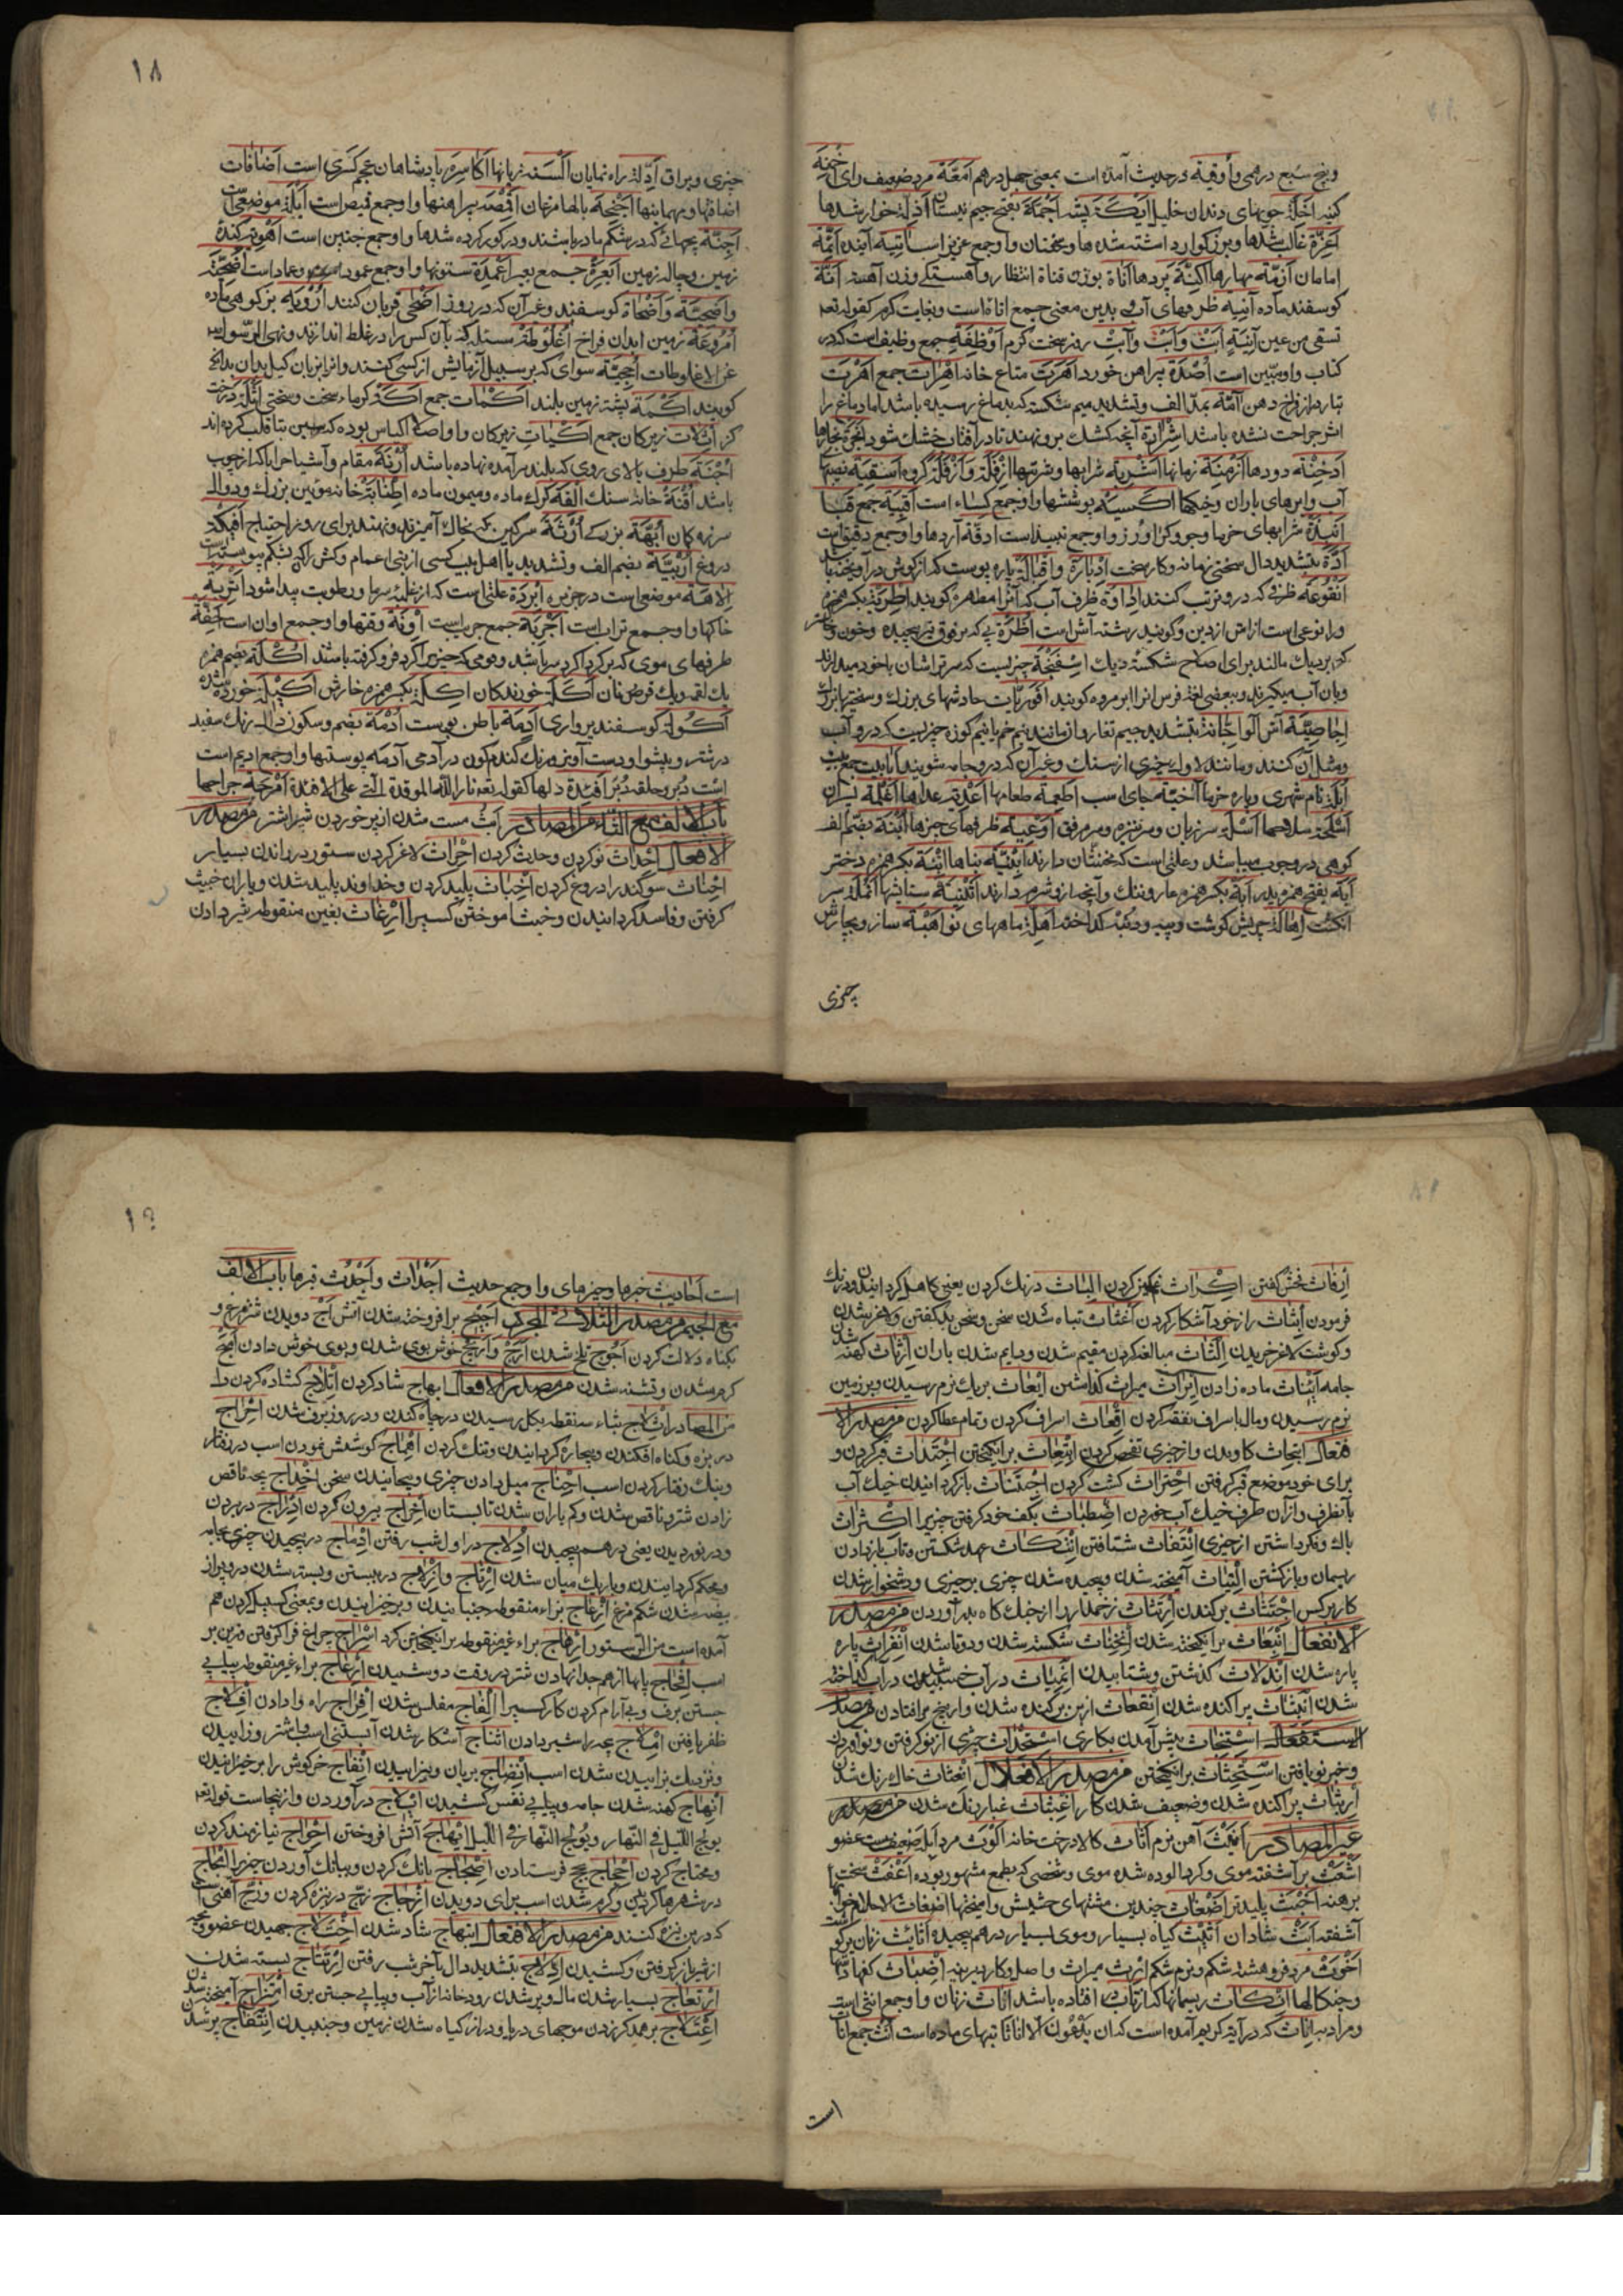 وپنج سبع درهمی وأوقیة درحدیث آمده است بمعنی چهل درهم امعة مرد ضعیف رای اخنة
کینه اخلة چوبهای دندان خلیل ایکة بیشه اجمة بفتح جیم نیستان اذلة خوار شدها
اعزة غالب شدها و بزرکوار داشته شده ها و سختان واو جمع عزیز است آتیة آینده ائمة
امامان ازمة مهارها اکنة پردها اناة بوزن قناة انتظار و آهستکی وزن آهسته
کوسفند ماده آنیة ظرفهای آب و بدین معنی جمع اناء است و بغایت کرم کقوله تعه
تسقی من عین آنیة ابت وآبت روز سخت کرم اوظفة جمع وظیف است که در
کتاب واو مبین است اصدة پیراهن خورد اهرة متاع خانه اهرات جمع اهرت
دهن آمة بمد الف و تشدید میم شکسته که بدماغ رسیده باشد اما دماغ را
اثر جراحت نشده باشد اشرارة آنچه کشک برو نهند تا در آفتاب خشک شود ابخرة بخارها
ادخنة دودها ازمنة زمانها اشربة شرابها و شربتها ازفلة وازفلة کروه اسقیة
آب وابرهای باران وخیکها اکسیة پوششها واو جمع کساء است اقبیة جمع قبا
انبذة شرابهای خرما وجو و واو جمع نبیذ است ادقة آردها واو جمع دقیق است
ادة بتشدید دال سختی زمانه و کار سخت ادبارة واقبالة پاره پوست که از کوش در آویخته باشد
انقوعة ظرفی که درو ترتیب کنند اداوة ظرف آب که آنرا مطهره کویند اطریة بکسر همزه
ورا نوعی است از آش ازدین و کویند رشته آش است اظرة پی که بر فوق تیر پیچیده وخون و خاکستر
که بر دیک مالند برای اصلاح شکسته دیک اسفنجة چیزیست که سرتراشان باخود میدارند
وبان آب میکیرند و بعضی لغة فرس آنرا ابر مرده کویند حادثهای بزرک و سختیها
اجاصیة آش آلو اجانة بتشدید جیم تغار و آن مانند نیم خم یا نیم کوزه چیزیست که درو آب
ومثل آن کنند و مانند لاوک چیزی از سنک و غیر آن که درو جامه شویند
ابلة نام شهری و پاره خرما آخیة جای اسب اطعمة طعامها اغذیة غذاها
اسلحة سلاحها اسلة سر زبان و سر نیزه و سر مرفق اوعیة ظرفهای چیزها ابنة بضم الف
کرهی در چوب میباشد و علتی است که مخنثان دارند ابنیة بناها ابنة بکسر همزه دختر
آیة بفتح همزه پدر ابة بکسر همزه عار و ننک و آنچه ازو شرم دارند اثنیة ستایشها انملة سر
انکشت اهالة چربش کوشت و پیه و دنبه کداخته اهلة ماههای نو اهبة ساز و بجارش
چیزی
۱۸
چیزی ویراق ادلة راه نمایان السنة زبانها اکاسرة پادشاهان عجم کسری است اضافات
اضافتها و مهمانیها اجنحة بالها مرغان اقمصة پیراهنها واو جمع قمیص است ایلة موضعی است
اجنة بچهائی که در شکم مادر باشند و در کور کرده شدها واو جمع جنین است
زمین و چاله زمین ابعرة جمع بعیر اعمدة ستونها واو جمع عمود و عماد است اضحیة
واضحیة واضحاة کوسفند و غیر آن که در روز اضحی قربان کنند ارویة بز کوهی ماده
امروعة زمین آبدان فراخ اغلوطة مسئله که بآن کس را در غلط اندازند و نهی الرسول
عن الاغلوطات احجیة سوای که بر سبیل آزمایش از کسی کنند
کویند اکمة پشته زمین بلند اکمات جمع اکة کرماء سخت و سختی اثلة درخت
کز زیرکان جمع اکیات زیرکان و او اصلا اکیاس بوده که سین بتا قلب کرده اند
اجنة طرف بالای روی که بلند بر آمده نهاده باشد ازنة مقام و آشیا
باشد اقنة خانه سنک القة کرک ماده و میمون ماده اطنابة خانه موئین بزرک و دوال
سرزه کمان ابهة بزرکی سرکین که بخاک آمیزند و بنهند برای روز احتیاج افیکة
دروغ اربیة بضم الف و تشدید یا اهل بیت کسی از بنی اعمام
الاهة موضعی است در جزیره ابردة علتی است که از غلبه سرما و رطوبت پیدا شود اتربة
خاکها واو جمع تراب است اجربة جمع جراب است اونة وقتها واو جمع اوان است احفة
طرفهای موی که بر کرداکرد سر باشد کرد فرو کرفته باشند اکلة بضم همزه
یک لقمه و یک قرص نان اکلة خورندکان اکلة بکسر همزه خارش اکیلة خورده شده
اکولة کوسفند پرواری ادمة باطن پوست ادمة بضم و سکون دال رنک سفید
در شتر و پیشوا و دست آویز و رنک کندم کون در آدمی آدمة پوستها واو جمع ادیم است
است دبر و حلقه دبر افئدة دلها کقوله تعه نار الله الموقدة التی علی الافئدة
باب الالف مع الثاء من المصادر ابث مست شدن از پر خوردن شیر اشتر من مصدر
الافعال احداث نو کردن و حدث کردن احراث لاغر کردن ستور در راندن بسیار
احناث سوکند را دروغ کردن اخباث پلید کردن و خداوند پلید شدن و یاران خبیث
کرفتن و فاسد کردانیدن و خبث آموختن کسیرا ارغاث بغین منقوطه شیر دادن
ارفاث فحش کفتن اکراث غمکین کردن الباث درنک کردن یعنی کاهل کردانیدن و درنک
فرمودن ابثاث راز خود آشکار کردن اغثاث تباه شدن سخن و سخن بد کفتن و لاغر شدن
وکوشت لاغر خریدن الثاث مبالغه کردن مقیم شدن و دایم شدن باران ارثاث کهنه شدن
جامه ایناث ماده زادن ایراث میراث کذاشتن ابعاث بریک نرم رسیدن و بر زمین
نرم رسیدن و مال باسراف نفقه کردن اقعاث اسراف کردن و تمام عطا کردن من مصدر الا
فتعال ابتحاث کاویدن و از چیزی تفحص کردن ابتعاث برانکیختن اجتداث قبر کردن و
برای خود موضع قبر کرفتن احتراث کشت کردن اجتناث باز کردانیدن خیک آب
بآنطرف و از آن طرف خیک آب خوردن اضطباث بکف خود کرفتن چیزیرا اکتراث
باک و نکر داشتن از چیزی انتفاث شتافتن انتکاث عهد شکستن و تاب باز دادن
ریسمان و بازکشتن التیاث آمیخته شدن و پیچیده شدن چیزی برچیزی و دشخوار شدن
کار بر کس اجتثاث بر کندن ارتثاث زخمدار را از جنک کاه بدر آوردن من مصدر
الانفعال انبعاث برانکیخته شدن انخناث شکسته شدن و دوتا شدن انفراث پاره
پاره شدن اندلاث کذشتن و شتابیدن انمیاث در آب خیسیدن و در آب کداخته
شدن انبثاث پراکنده شدن انقعاث از بن بر کنده شدن و از بیخ بر افتادن من مصدر
الاستفعال پیش آمدن بکاری استحداث چیزی از نو کرفتن و نو آوردن
و خبر نو یافتن استحثاث برانکیختن من مصدر الافعلال خاک رنک شدن
ارثاث پراکنده شدن و ضعیف شدن کار اغبثاث غبار رنک شدن من مصدر
غیر المصادر انیث آهن نرم اثاث کالا درخت خانه الوث مرد ابله ضعیف سست عضو
اشعث بر آشفته موی و کرد آلوده شده موی و شخصی که بطمع مشهور بوده اعفث
برهنه اخبث پلیدتر اضغاث چندین مشتهای حشیش و آمیختها اضغاث الاحلام خوابهای
آشفته ابث شادان اثیث کیاه بسیار و موی بسیار در هم پیچیده اثایث زنان پر کوشت
اخوث مرد فروهشته شکم و نرم شکم ارث میراث و اصل و کار دیرینه اضباث کفها دستها
وچنکالها انکاث ریسمانها که از تاب افتاده باشد اناث زنان واو جمع انثی است
و مراد به اناث که در آیه کریم آمده است که ان یدعون الا اناثا بتهای ماده است انث جمع اناث
است
۱۹
است احادیث خبرها و چیزهای واو جمع حدیث اجداث واجدث قبرها باب الالف
مع الجیم من مصدر الثلاثی المجرد اجیج برافروخته شدن آتش اج دویدن شتر مرغ و
بکناه دلالت کردن اجوج تلخ شدن ارج واریج خوش بوی شدن و بوی خوش دادن امج
کرم شدن و تشنه شدن من مصدر الافعال ابهاج شاد کردن ابلاج کشاده کردن
من المصادر اثلاج بثاء سه نقطه بکل رسیدن در چاه کندن و در روز برف شدن احراج
در بزه و کناه افکندن و بیچاره کردانیدن و تنک کردن اهماج کوشش نمودن اسب در رفتار
و نیک رفتار کردن اسب احناج میل دادن چیزی و پیچانیدن سخن اخداج بچه ناقص
زادن شتر و ناقص شدن و کم باران شدن تابستان اخراج بیرون کردن ادراج در بردن
و در نوردیدن یعنی در هم پیچیدن ادلاج در اول شب رفتن ادماج در پیچیدن چیزی بجامه
و محکم کردانیدن و باریک میان شدن ارتاج وازلاج در بستن و بسته شدن در و پر از
بیضه شدن شکم مرغ ازعاج بزاء منقوطه جنبانیدن و برخیزانیدن و بمعنی کسیل کردن هم
آمده است من الستور ارهاج براء غیر منقوطه برانکیختن کرد اسراج چراغ فراکرفتن و زین بر
اسب افحاج پایها از هم جدا نهادن شتر در وقت دوشیدن ارعاج براء غیر منقوطه پیاپی
جستن برق و بی آرام کردن کار کسیرا الفاج مفلس شدن افراج راه وا دادن افلاج
ظفر یافتن املاج بچه را شیر دادن انتاج آشکارا شدن آبستنی اسب یا شتر و زاییدن
ونزدیک بزاییدن شدن اسب انضاج بریان و پزانیدن انفاج خرکوش را برخیزانیدن
انهاج کهنه شدن جامه و پیاپی نفس کشیدن ایلاج در آوردن و از اینجاست قوله تعه
یولج اللیل فی النهار و یولج النهار فی اللیل ایهاج آتش افروختن احواج نیازمند کردن
و محتاج کردن احجاج بحج فرستادن اضجاج بانک کردن و ببانک آوردن چیزیرا
وکرم شدن اسب برای دویدن ازجاج زج در نیزه کردن و زج آهنی است
که در بن نیزه کنند من مصدر الافتعال ابتهاج شاد شدن اختلاج جهیدن عضوی و بچه
از شیر باز کرفتن و کشیدن ادلاج بتشدید دال بآخر شب رفتن ارتتاج بسته شدن
ارتعاج بسیار شدن مال و پر شدن رودخانه از آب و پیاپی جستن برق امتزاج آمیخته شدن
اعتلاج بر هم کر زدن موجهای دریا و دراز کیاه شدن زمین و جنبیدن انتفاج پر شدن